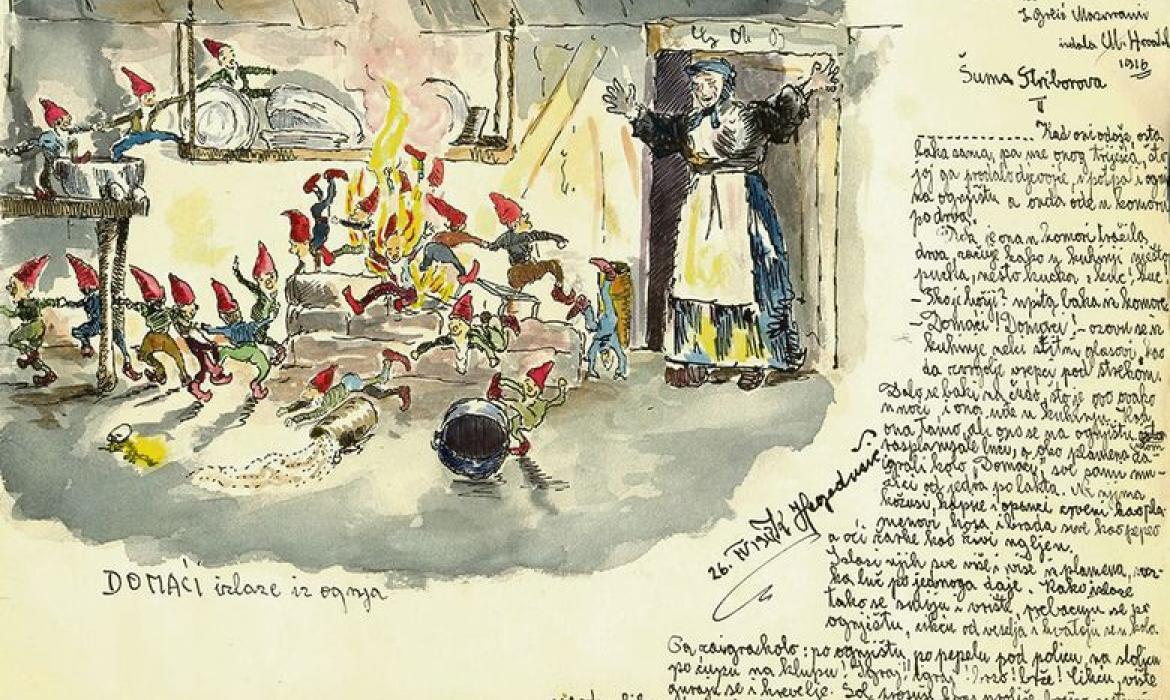 I. Brlić Mažuranić
izdala M. Horvat
1916
Šuma Striborova
II
Kad oni odoše, osta
baka sama, pa uze onog triješća, što
joj ga prodalo djevojče, i potpali oganj
na ognjištu a onda ode u komoru
po drva.
Dok je ona u komori tražila
drva, začuje kako u kuhinji nešto
pucka, nešto kucka: „kuc! kuc!
– Tko je božji? zapita baka iz komore.
– Domaći! Domaći! – ozovu se iz
kuhinje neki sitni glasovi, kao
da cvrkolje vrepci pod strehom.
Dalo se baki na čudo, što je ovo ovako
u noći, i ona uđe u kuhinju. Kad
ona tamo, ali ono se na ognjištu
rasplamsale luči, a oko plamena za-
igrali kolo „Domaći, sve sami mu-
žići od jedva po lakta. Na njima
kožusi, kapice i opanci crveni kao pla-
menovi, kosa i brada sive kao pepeo
a oči žarke kao živi ugljen.
Izlazi njih sve više i više iz plamena, sva-
ka luč po jednoga daje. Kako izlaze
tako se smiju i vrište, prebacuju se po
ognjištu, cikću od veselja i hvataju se u kolo.
Pa zaigra kolo: po ognjištu, po pepelu pod policu, na stoliću
po ćupu na klupu! Igraj! igraj! Brzo! brže! Cikću, vrište
guraju se i krevelje. Sol
26. IV 1937 K Hegedušić
DOMAĆI izlaze iz ognja